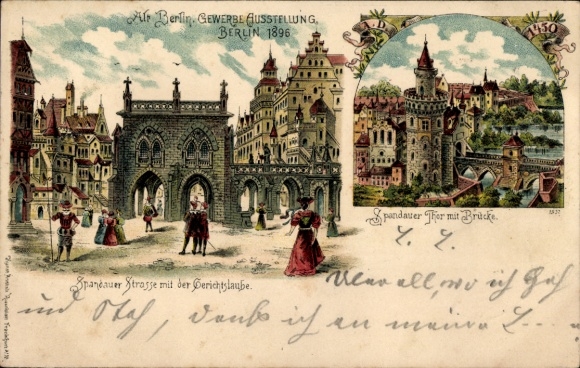 Alt Berlin. GEWERBE AUSSTELLUNG,
BERLIN 1896.
A.D. 1450
Spandauer Thor mit Brücke.
Spandauer Strasse mit der Gerichtslaube.
Überall, wo ich Geh
und Steh, denk ich an meine L...